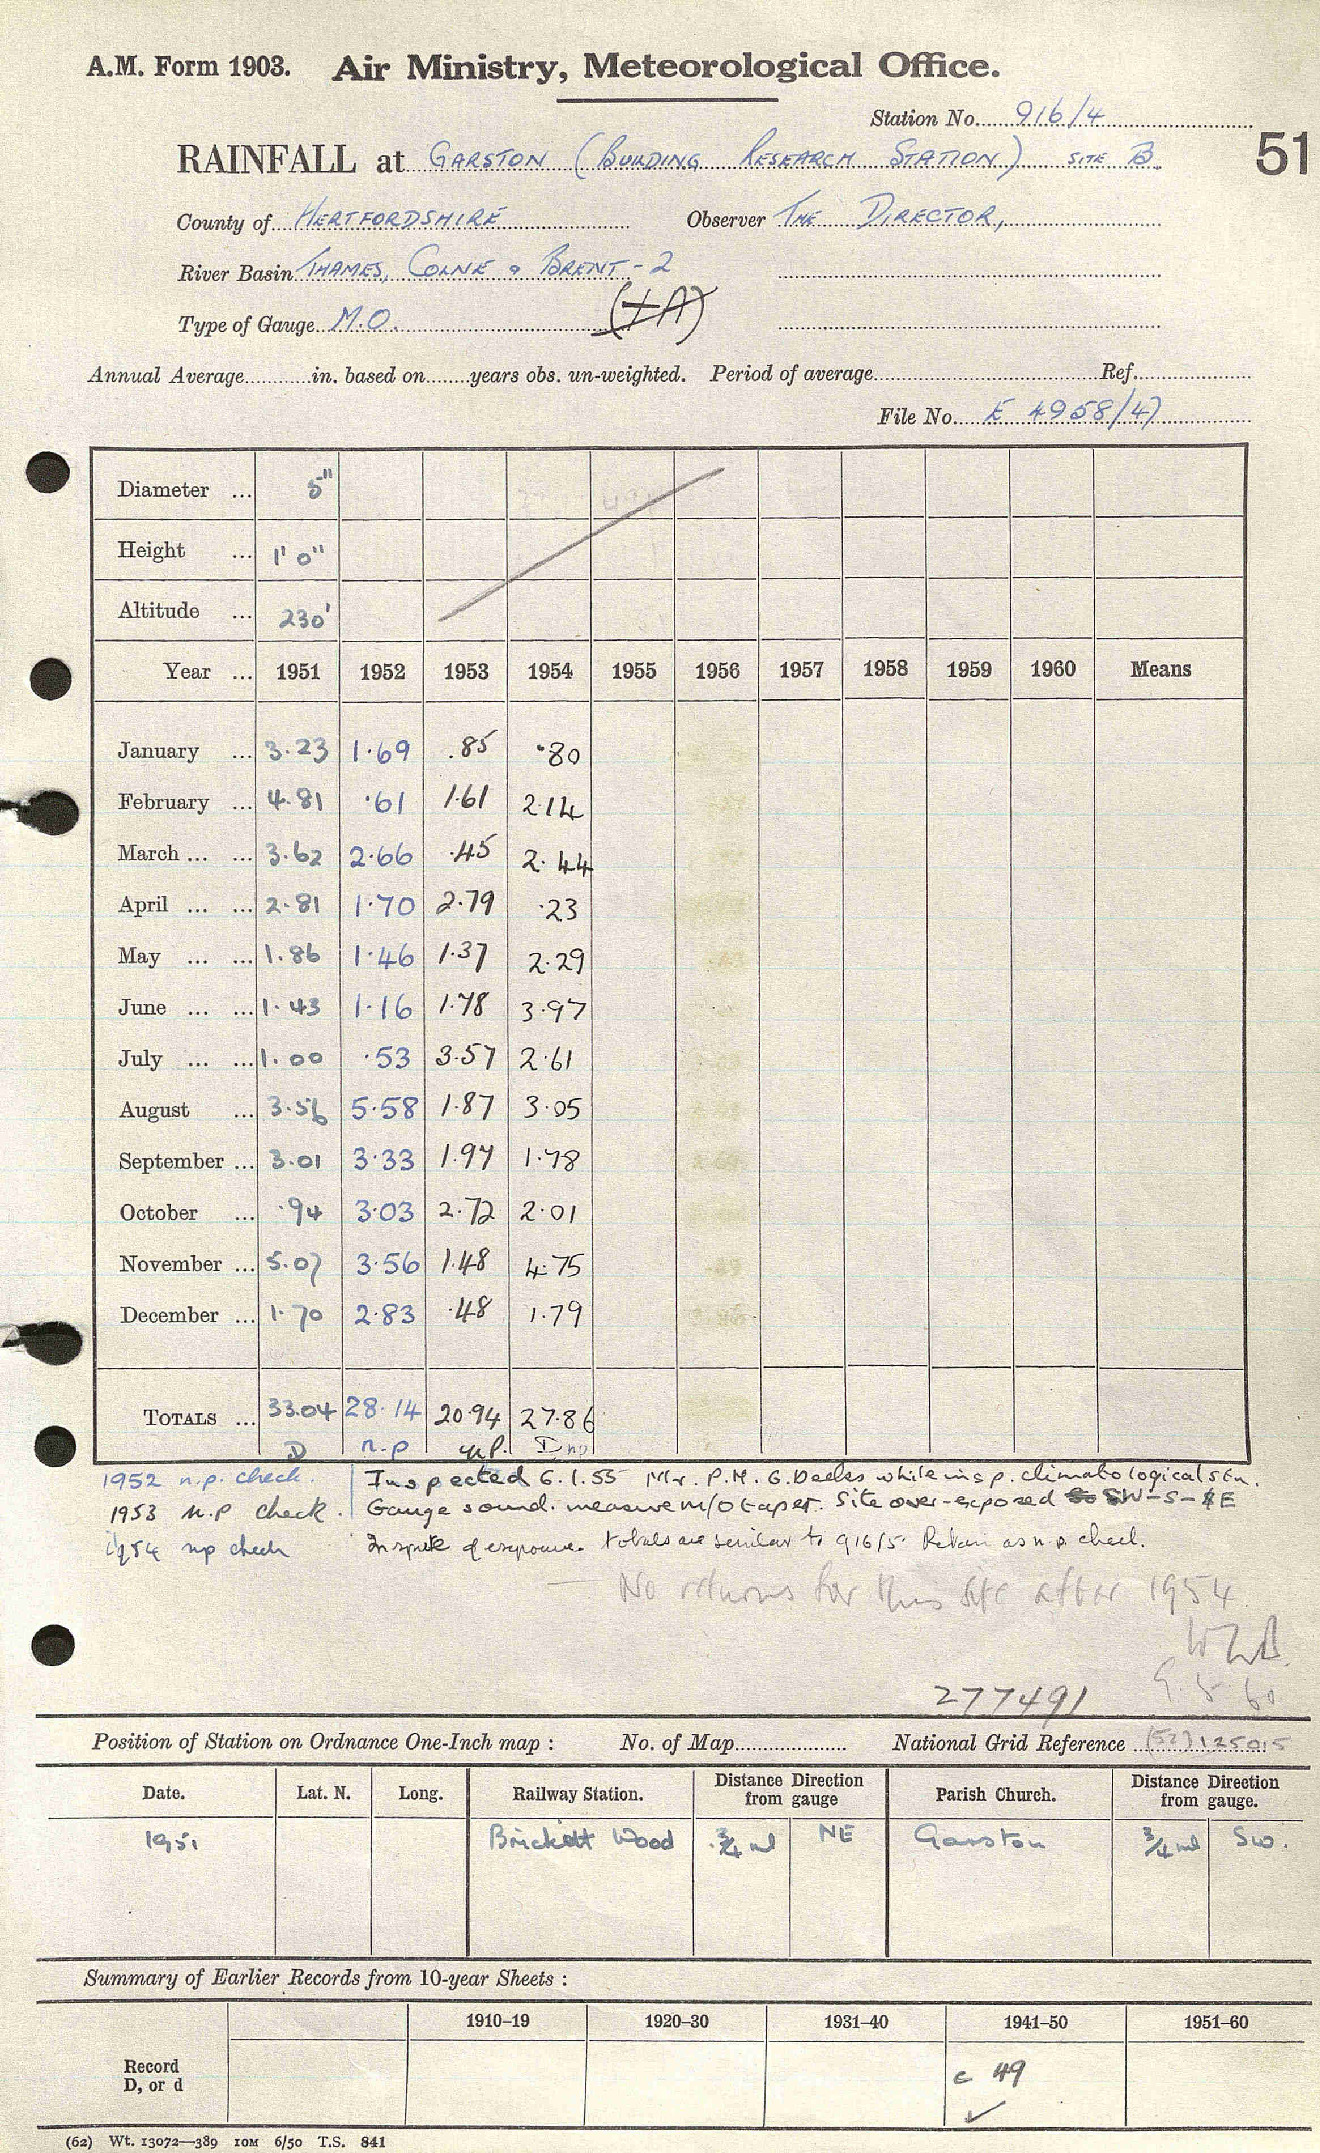 A.M. Form 1903. Air Ministry, Meteorological Office.
Station No. 916/4
51
RAINFALL at GARSTON (BUILDING RESEARCH STATION) SITE B
County of HERTFORDSHIRE Observer THE DIRECTOR,
River Basin THAMES, COLNE & BRENT-2
Type of Gauge M.O. (+A)
Annual Average in. based on years obs. un-weighted. Period of average Ref.
File No. E 4958/47
Diameter ... 5"
Height ... 1' 0"
Altitude ... 230'
Year ... 1951 1952 1953 1954 1955 1956 1957 1958 1959 1960 Means
January ... 3.23 1.69 .85 .80
February ... 4.81 .61 1.61 2.14
March ... ... 3.62 2.66 .45 2.44
April ... ... 2.81 1.70 2.79 .23
May ... ... 1.86 1.46 1.37 2.29
June ... ... 1.43 1.16 1.78 3.97
July ... ... 1.00 .53 3.57 2.61
August ... 3.56 5.58 1.87 3.05
September ... 3.01 3.33 1.97 1.78
October ... .94 3.03 2.72 2.01
November ... 5.07 3.56 1.48 4.75
December ... 1.70 2.83 .48 1.79
TOTALS ... 33.04 28.14 20.94 27.86
D n.p n.p. D np
1952 n.p. check. Inspected 6.1.55 Mr. P.M. G. while insp. climatological stn.
1953 n.p check. Gauge sound. measure m/o taper. Site over-exposed SW-S-E
1954 np check In spite of exposure. totals are similar to 916/5 Retain as n.p. check.
— No returns for this site after 1954
9.5.60
277491
Position of Station on Ordnance One-Inch map : No. of Map National Grid Reference (52)125015
Date. Lat. N. Long. Railway Station. Distance Direction from gauge Parish Church. Distance Direction from gauge.
1951 Brickett Wood 3/4 ml NE Garston 3/4 ml SW.
Summary of Earlier Records from 10-year Sheets :
1910–19 1920–30 1931–40 1941–50 1951–60
Record D, or d c 49
(62) Wt. 13072—389 10M 6/50 T.S. 841